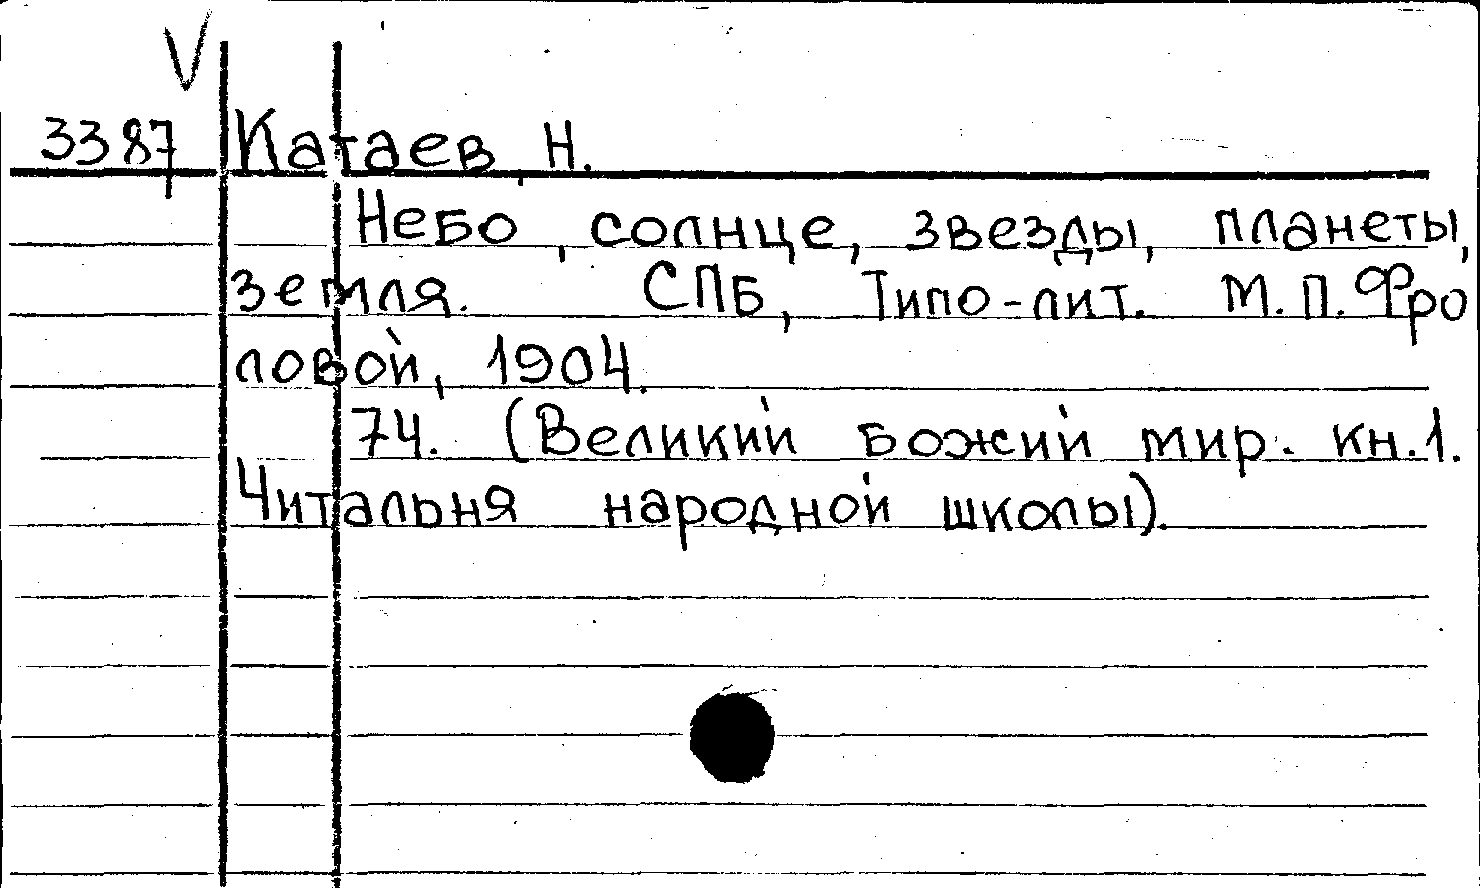 V
3387 Катаев, Н.
Небо, солнце, звезды, планеты,
земля. СПБ, Типо-лит. М.П. Фро
ловой, 1904.
74. (Великий божий мир. кн.1.
Читальня народной школы).